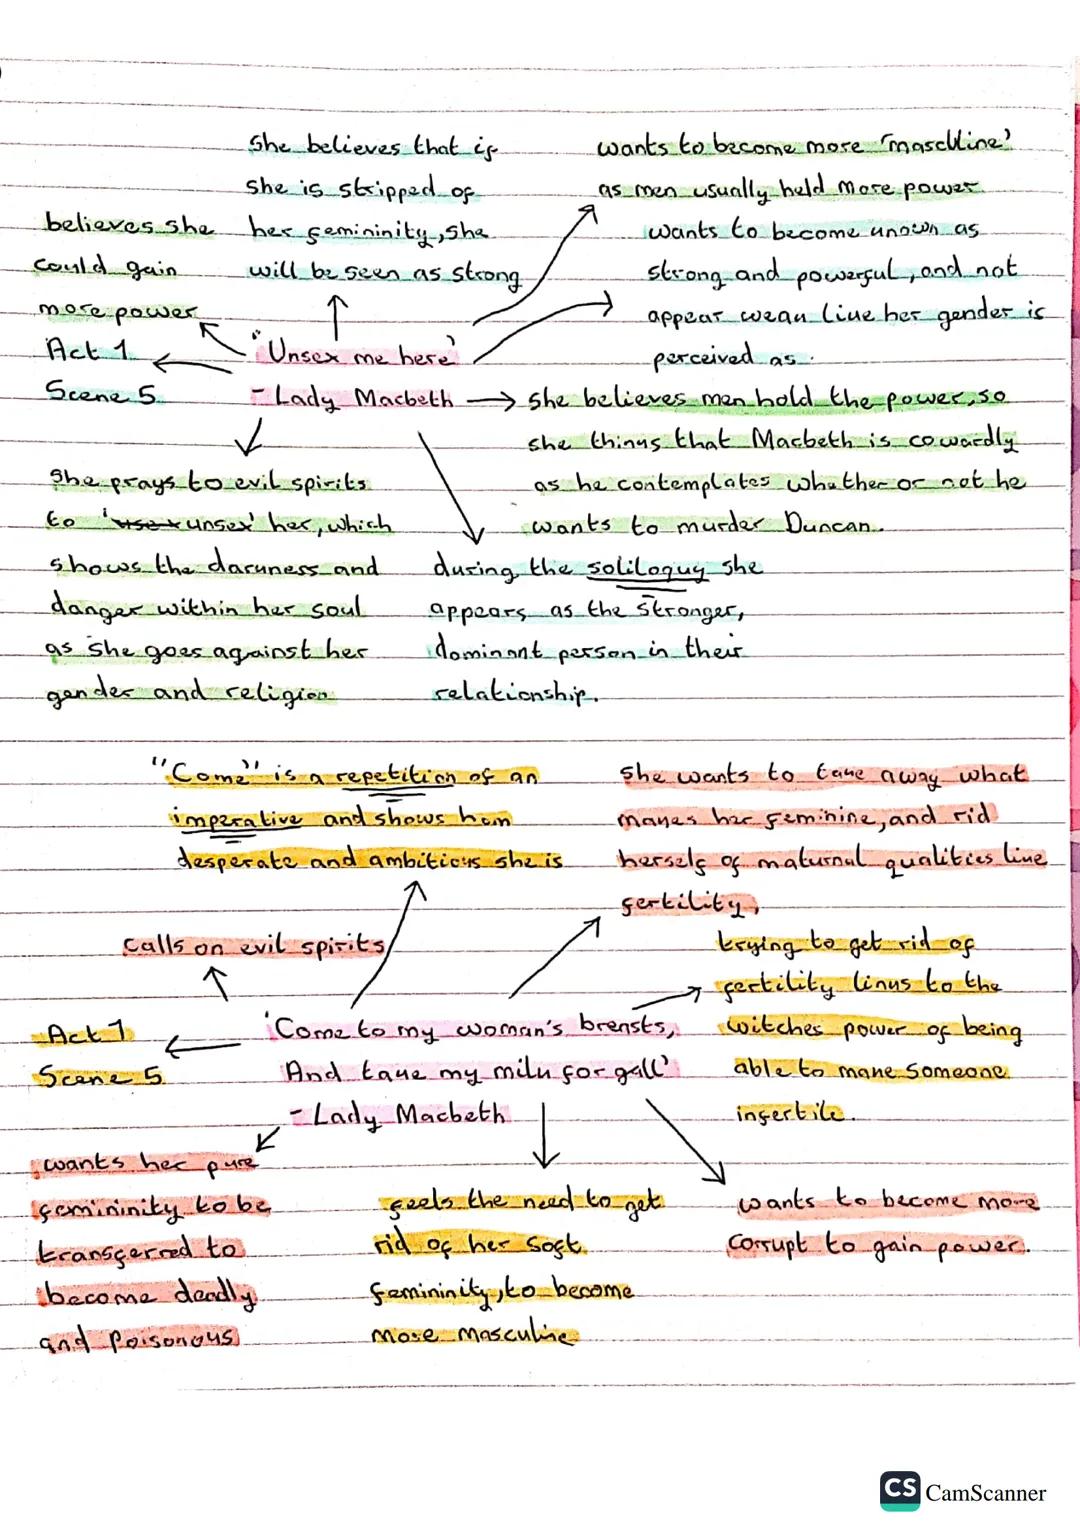 She believes that if
she is stripped of
her femininity, she
will be seen as strong
wants to become more 'masculine'
as men usually held more power
believes she
could gain
more power
wants to become known as
strong and powerful, and not
appear weak like her gender is
perceived as.
Act 1
Scene 5
"Unsex me here"
- Lady Macbeth
she believes men hold the power, so
she thinks that Macbeth is cowardly
as he contemplates whather or not he
wants to murder Duncan.
She prays to evil spirits
to 'unsex' her, which
shows the darkness and
danger within her soul
as she goes against her
gender and religion
during the soliloquy she
appears as the stronger,
dominant person in their
relationship.
"Come" is a repetition of an
imperative and shows how
desperate and ambitious she is
she wants to take away what
makes her feminine, and rid
herself of maturnal qualities like
fertility,
calls on evil spirits
trying to get rid of
fertility links to the
witches power of being
able to make someone
infertile.
Act 1
Scene 5
'Come to my woman's breasts,
And take my milk for gall'
- Lady Macbeth
wants her pure
femininity to be
transferred to
become deadly
and poisonous
feels the need to get
rid of her soft
femininity, to become
more masculine
wants to become more
corrupt to gain power.
CS CamScanner